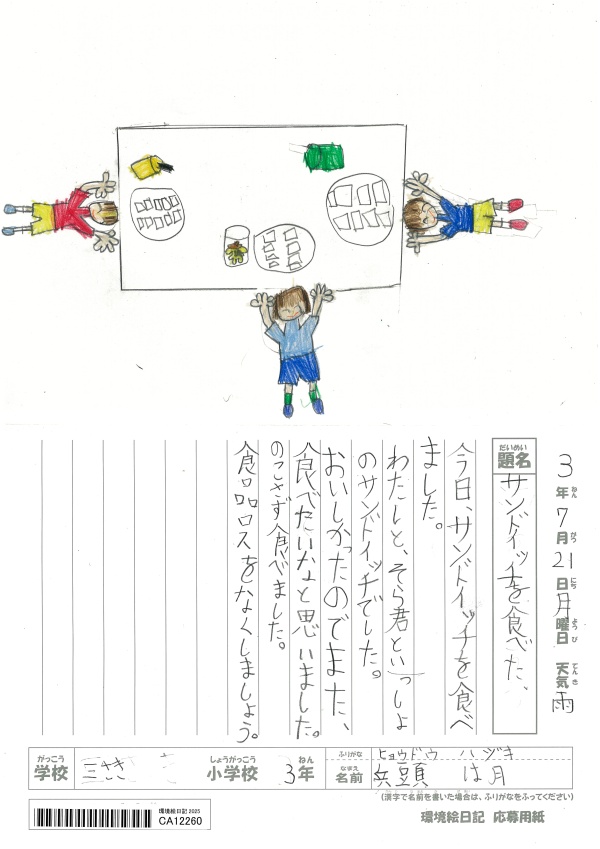 3年7月21日月曜日 天気雨
ねん がつ にち ようび てんき
だいめい
題名 サンドイッチを食べた、
今日、サンドイッチを食べ
ました。
わたしと、そら君といっしょ
のサンドイッチでした。
おいしかったのでまた、
食べたいなと思いました。
のこさず食べました。
食品ロスをなくしましょう。
がっこう しょうがっこう ねん
学校 小学校 3年
ふりがな ヒョウドウ ハヅキ
なまえ
名前 兵頭 は月
(漢字で名前を書いた場合は、ふりがなをふってください)
環境絵日記 2025
CA12260
環境絵日記 応募用紙